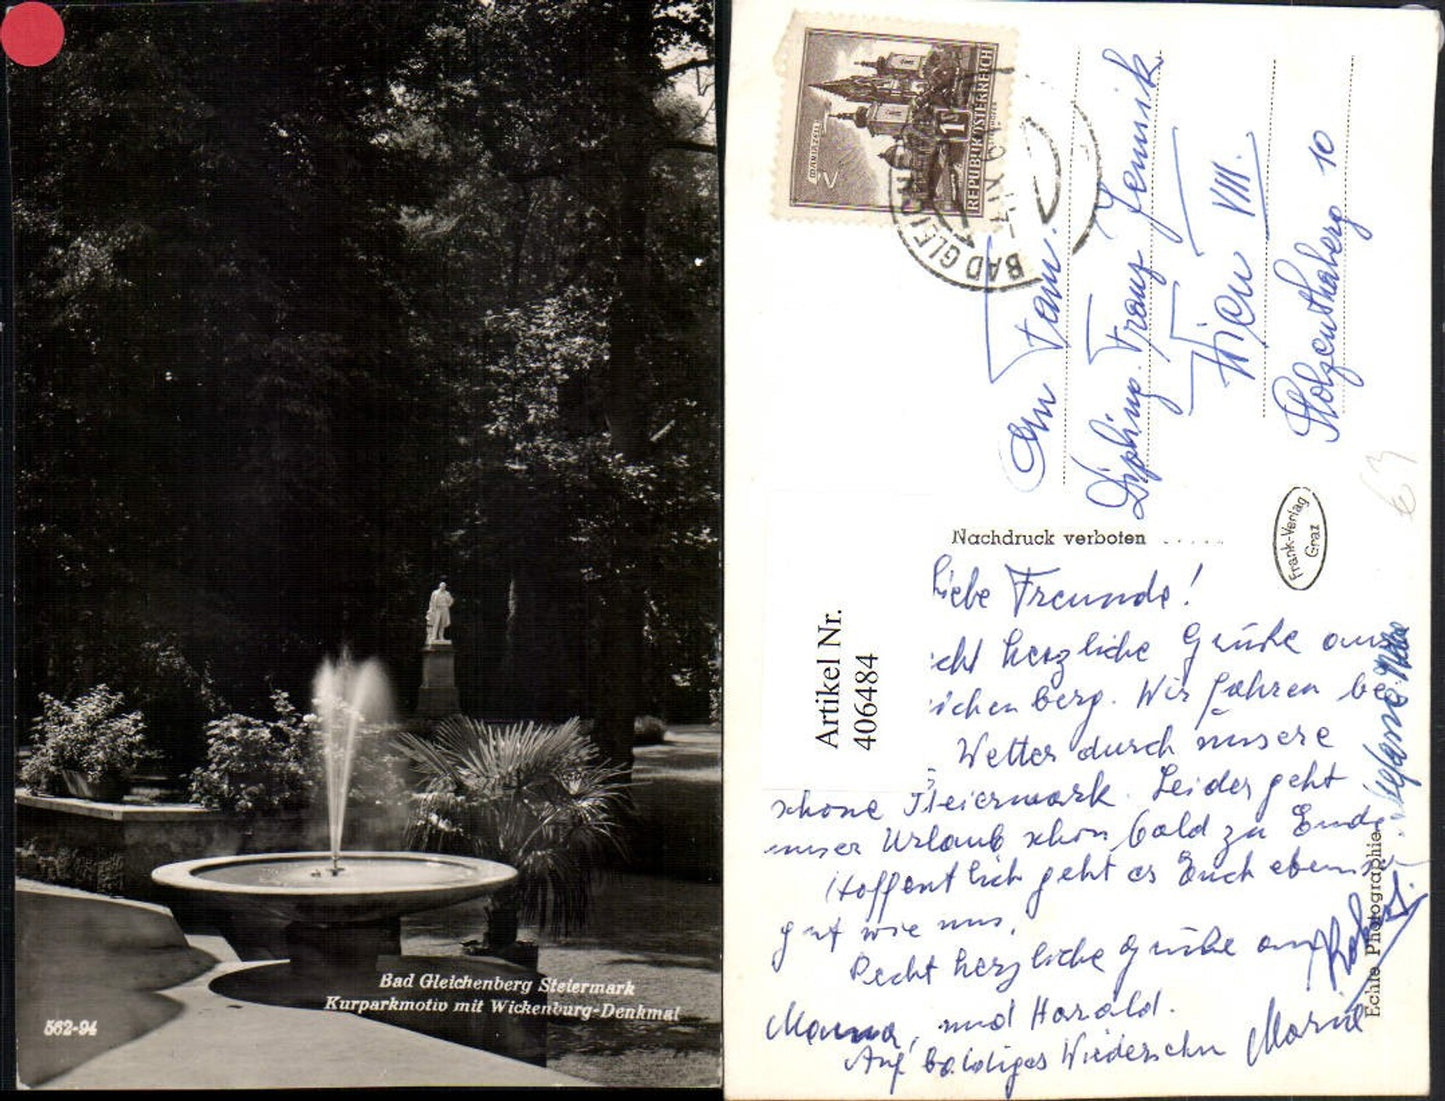 Bad Gleichenberg Steiermark
Kurparkmotiv mit Wickenburg-Denkmal
562-94
REPUBLIK ÖSTERREICH
MARIAZELL
1
BAD GLEICH
An Fam.
Dipl.Ing. Franz Jennik
Wien VIII.
Stolzenthalerg 10
Nachdruck verboten
Frank-Verlag
Graz
Artikel Nr.
406484
Liebe Freunde!
cht herzliche Grüße aus
ichenberg. Wir fahren bei
Wetter durch unsere
schöne Steiermark. Leider geht
unser Urlaub schon bald zu Ende
Hoffentlich geht es Euch ebenso
gut wie uns.
Recht herzliche Grüße an
Mama, und Harald.
Auf baldiges Wiedersehn
Robert
Echte Photographie